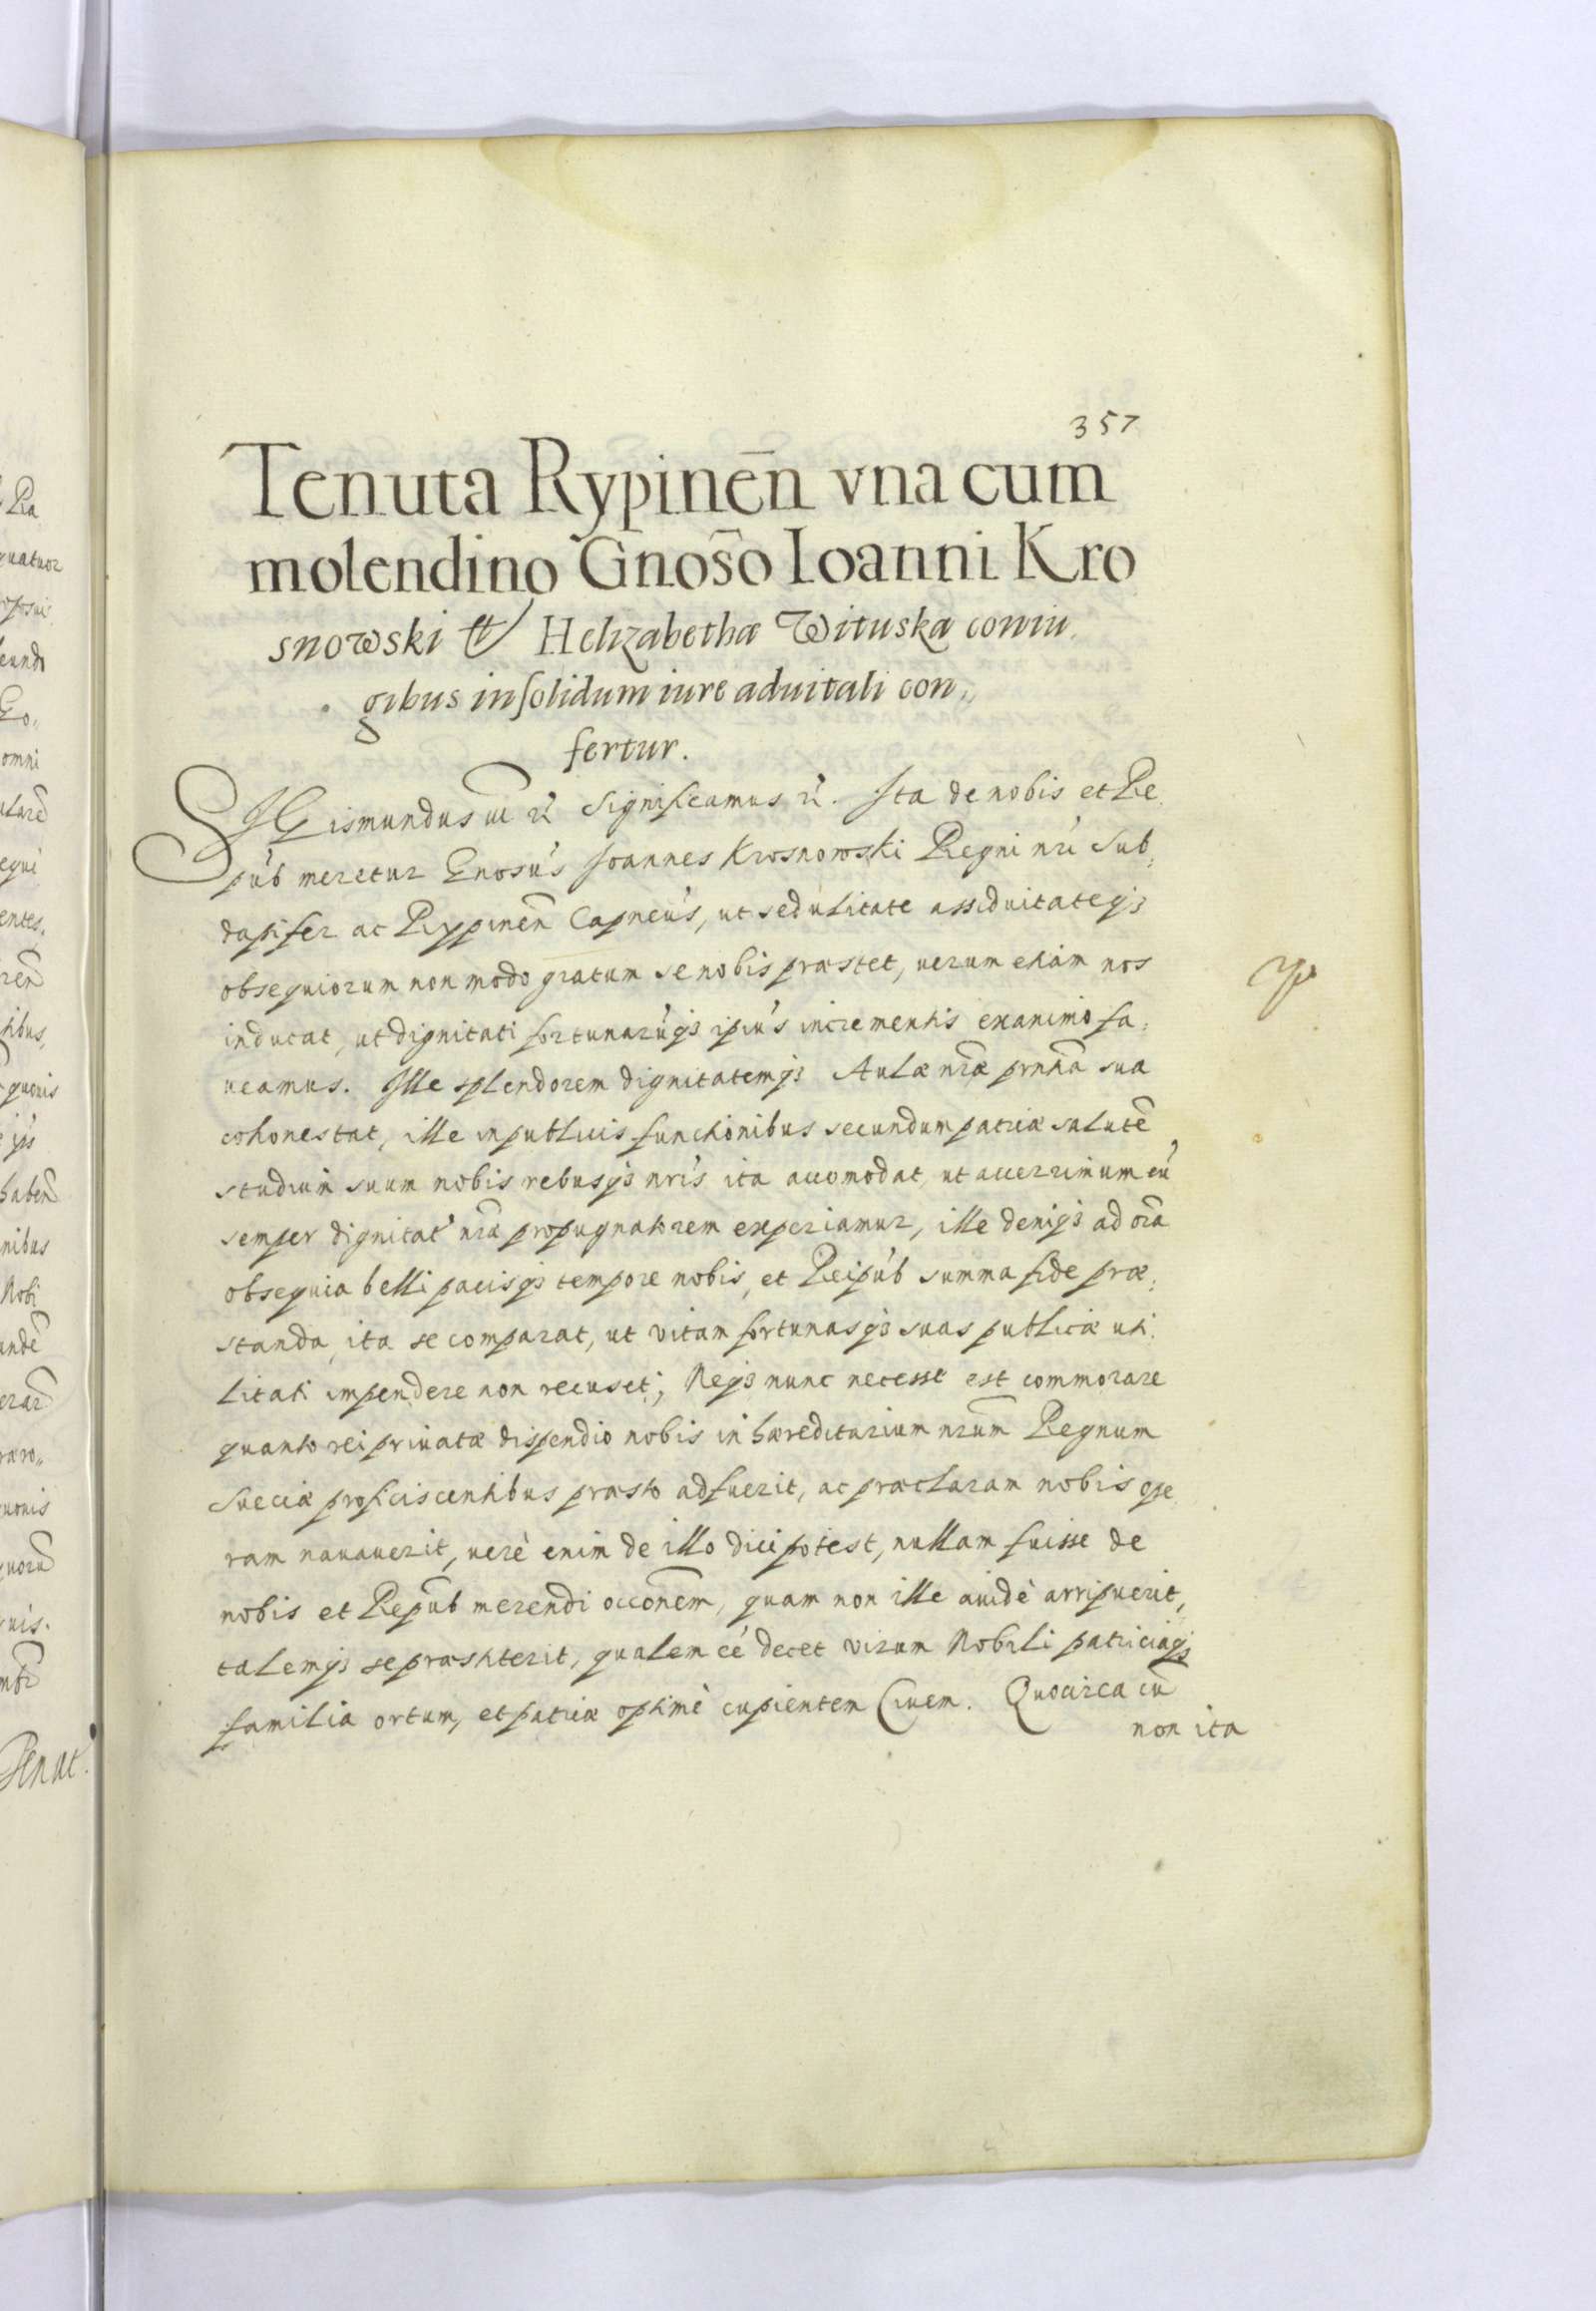 357
Tenuta Rypinen̄ vna cum
molendino Gnoso̅ Ioanni Kro
snowski et Helizabetha Wituska coniu,
gibus insolidum iure aduitali con,,
fertur.
SIGismundus III rc̓. Significamus rc̓. Ita de nobis et Re,
pu̓b meretur Gnosu̓s Joannes Krosnowski Regni nri̓ Sub,
dapifer ac Rypinen̄ Capneu̓s, ut sedulitate assiduitateq3
obsequiorum non modo gratum se nobis præstet, uerum etiam nos
inducat, ut dignitati fortunaru̓q3 ipiu̓s incrementis ex animo fa,
ueamus. Ille splendorem dignitatemq3 Aulæ nr̄æ prntīa sua
cohonestat, ille in publicis functionibus secundum patriæ salutē
studium suum nobis rebusq3 nri̓s ita accomodat, ut acerrimum eu̓
semper dignitat̓ nr̄æ propugnatorem experiamur, ille deniq3 ad oīa
obsequia belli pacisq3 tempore nobis, et Reipu̓b summa fide præ,
standa, ita se comparat, ut vitam fortunasq3 suas publicæ uti,
litati impendere non recuset; Neq3 nunc necesse est commorare
quanto rei priuatæ dispendio nobis in hæreditarium nrūm Regnum
Sueciæ proficiscentibus præsto adfuerit, ac præclaram nobis ope,
ram nauauerit, uerè enim de illo dici potest, nullam fuisse de
nobis et Repūb merendi occōnem, quam non ille auidè arripuerit,
talemq3 se præstiterit, qualem eē decet virum Nobili patriciaq3
familia ortum, et patriæ optimè cupientem Ciuem. Quocirca cū
non ita